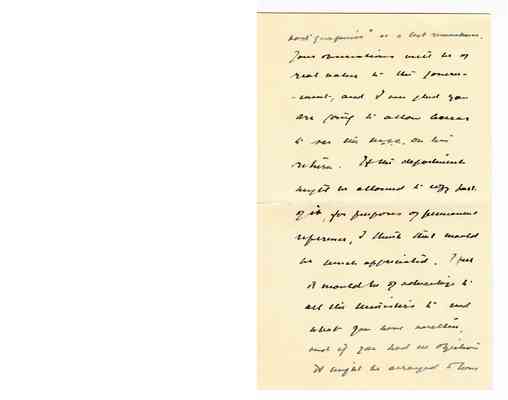 Your observations will be of
real value to the Govern-
-ment, and I am glad you
are going to allow
to see the on his
return. If the department
might be allowed to copy part
of it, for purposes of permanent
reference, I think that would
be much appreciated. I feel
it would be of advantage to
all the Ministers to read
what you have written,
and if you had no objection
it might be arranged to have